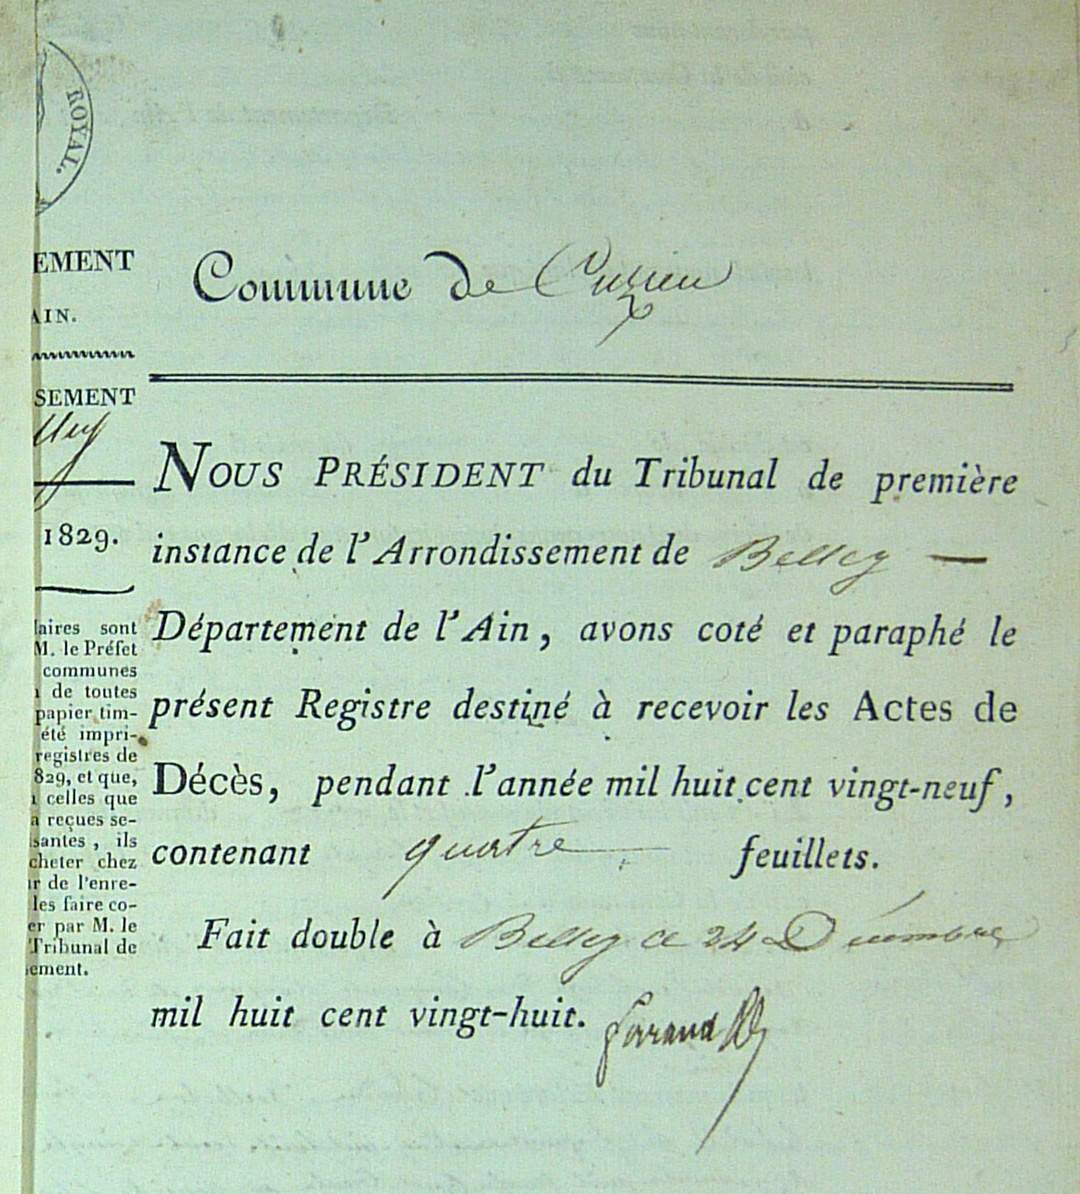 ROYAL.
EMENT
AIN.
SEMENT
lley
1829.
laires sont
M. le Préfet
communes
de toutes
papier tim-
été impri-
registres de
829, et que,
celles que
a reçues se-
santes, ils
cheter chez
r de l'enre-
les faire co-
er par M. le
Tribunal de
ement.
Commune de Cuzieu
NOUS PRÉSIDENT du Tribunal de première
instance de l'Arrondissement de Belley —
Département de l'Ain, avons coté et paraphé le
présent Registre destiné à recevoir les Actes de
Décès, pendant l'année mil huit cent vingt-neuf,
contenant quatre feuillets.
Fait double à Belley le 24 Décembre
mil huit cent vingt-huit.